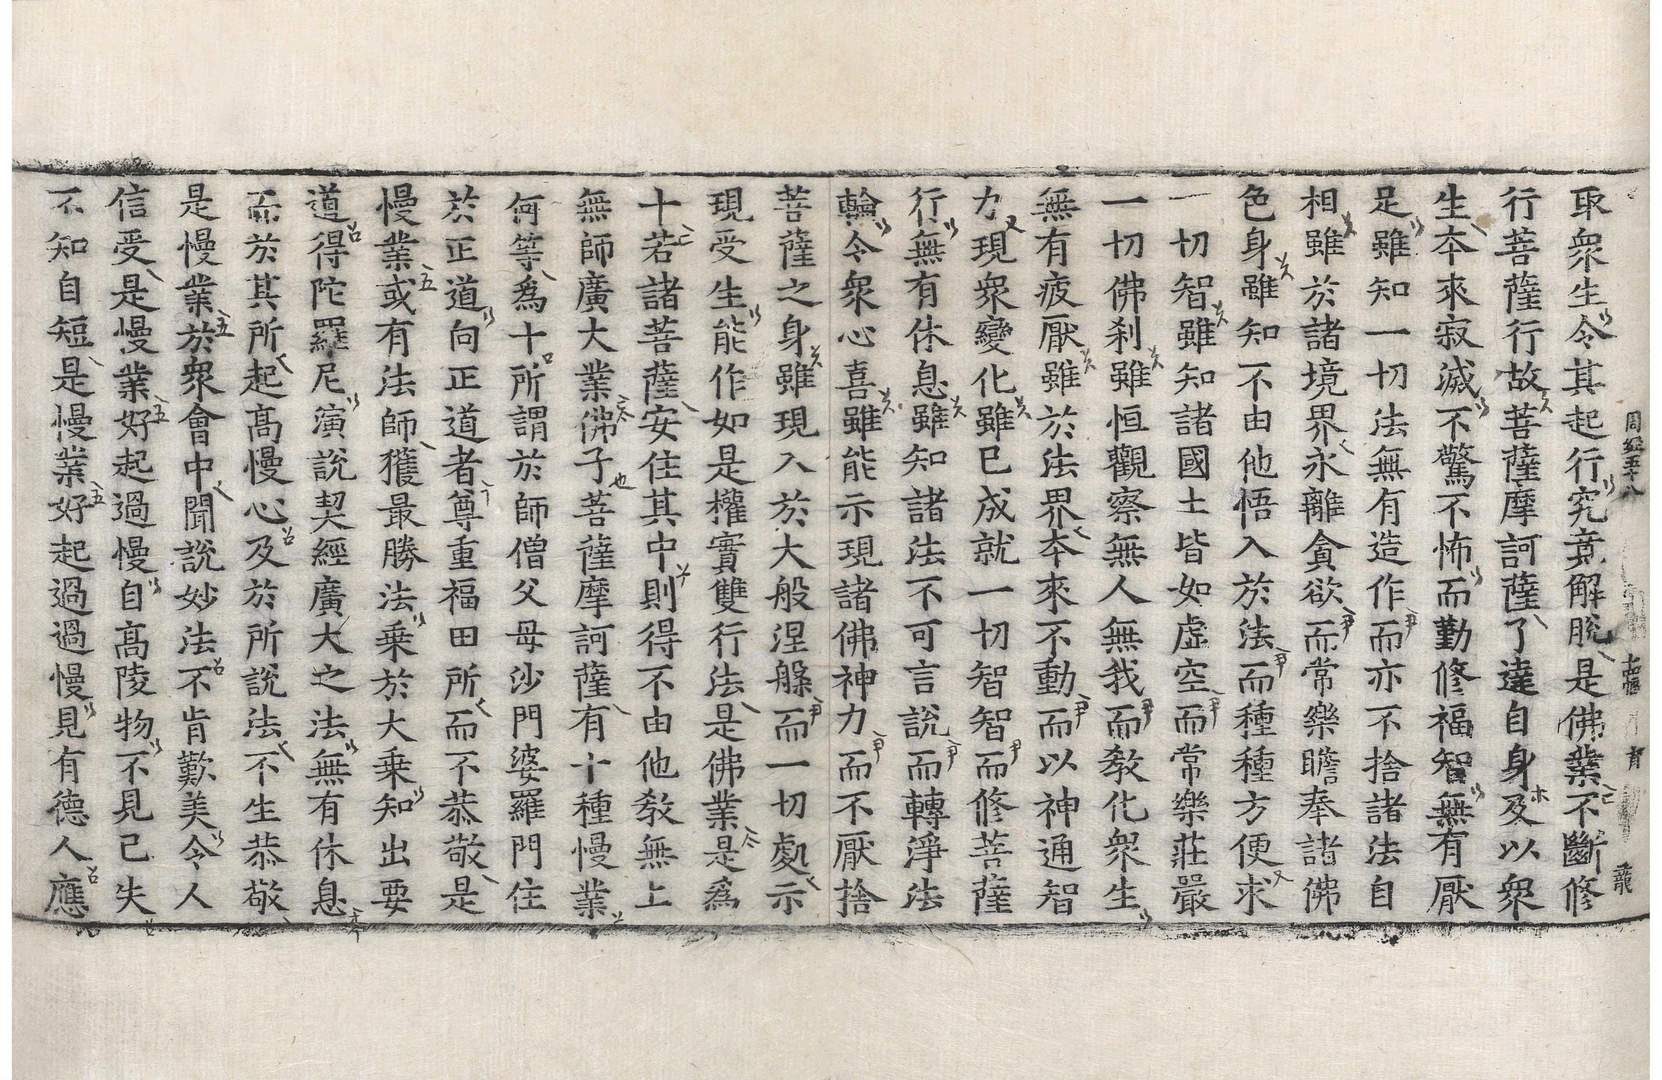 周經五十八
十四幅
龍
取衆生令其起行究竟解脫是佛業不斷修
行菩薩行故菩薩摩訶薩了達自身及以衆
生本來寂滅不驚不怖而勤修福智無有厭
足雖知一切法無有造作而亦不捨諸法自
相雖於諸境界永離貪欲而常樂瞻奉諸佛
色身雖知不由他悟入於法而種種方便求
一切智雖知諸國土皆如虛空而常樂莊嚴
一切佛刹雖恒觀察無人無我而敎化衆生
無有疲厭雖於法界本來不動而以神通智
力現衆變化雖已成就一切智智而修菩薩
行無有休息雖知諸法不可言說而轉淨法
輪令衆心喜雖能示現諸佛神力而不厭捨
菩薩之身雖現入於大般涅槃而一切處示
現受生能作如是權實雙行法是佛業是爲
十若諸菩薩安住其中則得不由他敎無上
無師廣大業佛子菩薩摩訶薩有十種慢業
何等爲十所謂於師僧父母沙門婆羅門住
於正道向正道者尊重福田所而不恭敬是
慢業或有法師獲最勝法乘於大乘知出要
道得陀羅尼演說契經廣大之法無有休息
而於其所起高慢心及於所說法不生恭敬
是慢業於衆會中聞說妙法不肯歎美令人
信受是慢業好起過慢自高陵物不見己失
不知自短是慢業好起過過慢見有德人應